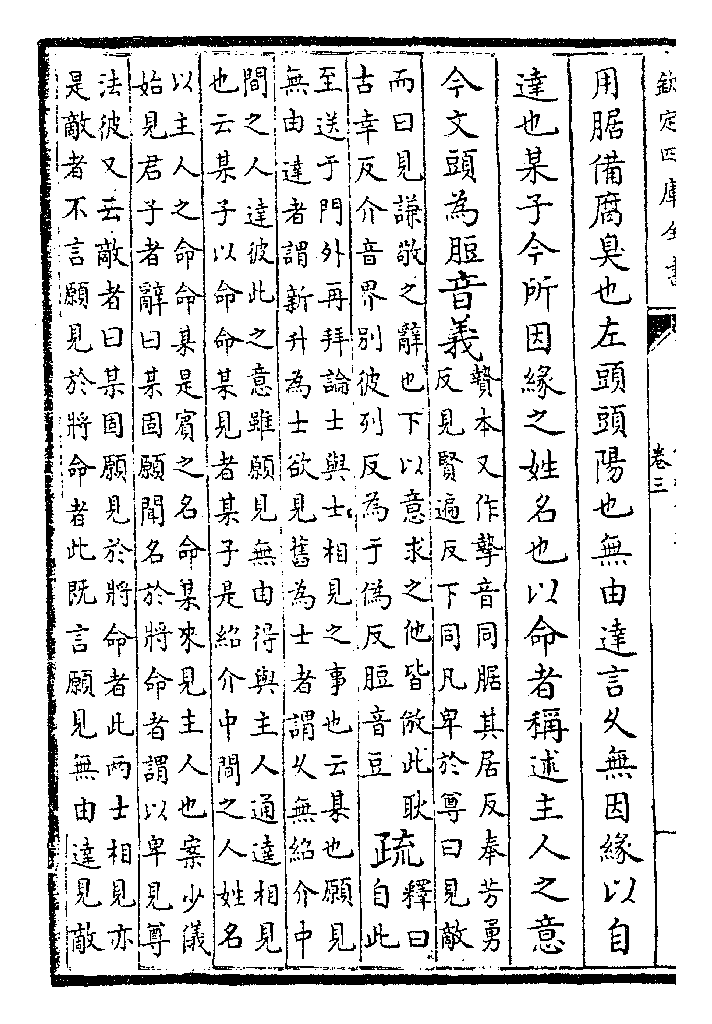 欽定四庫全書
卷三
用腒備腐臭也左頭頭陽也無由達言久無因緣以自
達也某子今所因緣之姓名也以命者稱述主人之意
今文頭為脰音義
贄本又作摯音同腒其居反奉芳勇
反見賢遍反下同凡卑於尊曰見敵
而曰見謙敬之辭也下以意求之他皆倣此耿
古幸反介音界別彼列反為于偽反脰音豆
疏
釋曰
自此
至送于門外再拜論士與士相見之事也云某也願見
無由達者謂新升為士欲見舊為士者謂久無紹介中
間之人達彼此之意雖願見無由得與主人通達相見
也云某子以命命某見者某子是紹介中間之人姓名
以主人之命命某是賓之名命某來見主人也案少儀
始見君子者辭曰某固願聞名於將命者謂以卑見尊
法彼又云敵者曰某固願見於將命者此兩士相見亦
是敵者不言願見於將命者此既言願見無由達見敵